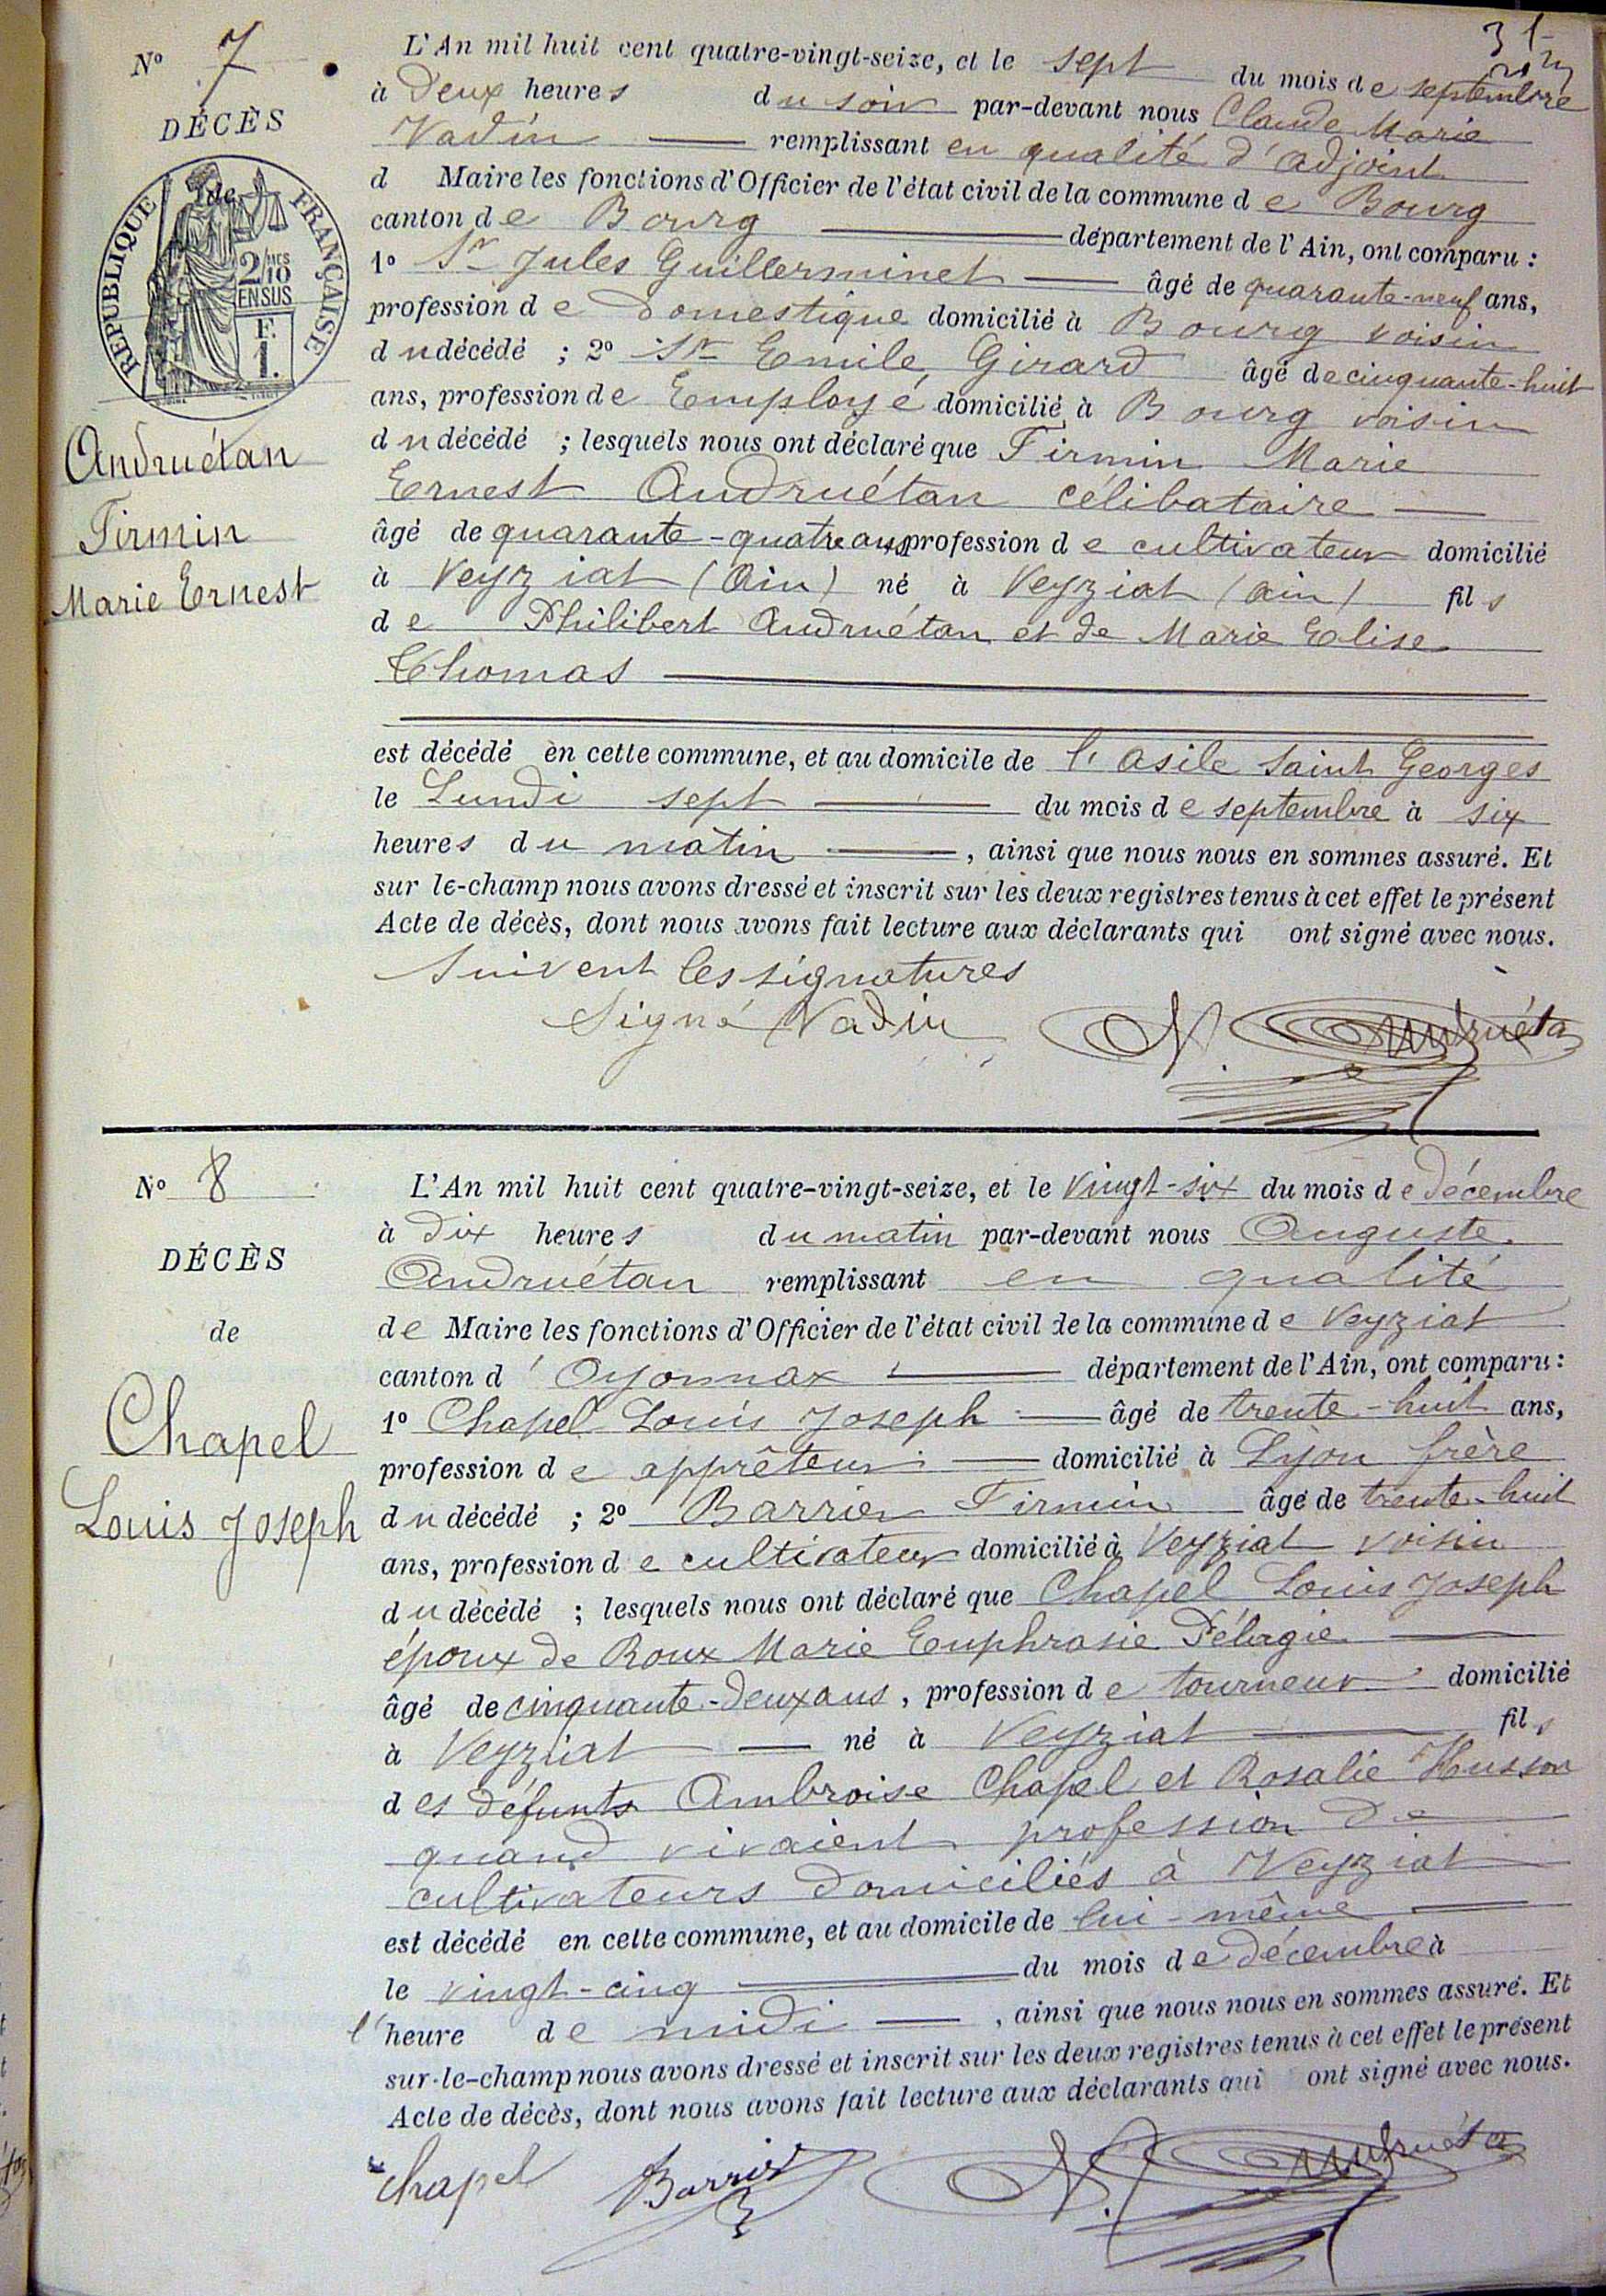 31
N° 7
DÉCÈS
de
RÉPUBLIQUE FRANÇAISE
2/10 EN SUS
F. 1.
Andruétan
Firmin
Marie Ernest
L'An mil huit cent quatre-vingt-seize, et le sept du mois de septembre
à deux heures du soir par-devant nous Claude Marie
Vadin remplissant en qualité d'adjoint
d Maire les fonctions d'Officier de l'état civil de la commune de Bourg
canton de Bourg département de l'Ain, ont comparu :
1° Sr Jules Guillerminet âgé de quarante-neuf ans,
profession de domestique domicilié à Bourg voisin
du décédé ; 2° Sr Emile Girard âgé de cinquante-huit
ans, profession de Employé domicilié à Bourg voisin
du décédé ; lesquels nous ont déclaré que Firmin Marie
Ernest Andruétan célibataire
âgé de quarante-quatre ans profession de cultivateur domicilié
à Veyziat (Ain) né à Veyziat (ain) fils
de Philibert Andruétan et de Marie Elise
Thomas
est décédé en cette commune, et au domicile de l'asile Saint Georges
le Lundi sept du mois de septembre à six
heures du matin , ainsi que nous nous en sommes assuré. Et
sur le-champ nous avons dressé et inscrit sur les deux registres tenus à cet effet le présent
Acte de décès, dont nous avons fait lecture aux déclarants qui ont signé avec nous.
Suivent les signatures
Signé Vadin A. Andruétan
N° 8
DÉCÈS
de
Chapel
Louis Joseph
L'An mil huit cent quatre-vingt-seize, et le vingt-six du mois de décembre
à dix heures du matin par-devant nous Auguste
Andruétan remplissant en qualité
de Maire les fonctions d'Officier de l'état civil de la commune de Veyziat
canton d'Oyonnax département de l'Ain, ont comparu :
1° Chapel Louis Joseph âgé de trente-huit ans,
profession de apprêteur domicilié à Lyon frère
du décédé ; 2° Barrier Firmin âgé de trente-huit
ans, profession de cultivateur domicilié à Veyziat voisin
du décédé ; lesquels nous ont déclaré que Chapel Louis Joseph
époux de Roux Marie Euphrasie Pélagie
âgé de cinquante-deux ans, profession de tourneur domicilié
à Veyziat né à Veyziat fils
des défunts Ambroise Chapel et Rosalie Husson
quand vivaient profession de
cultivateurs domiciliés à Veyziat
est décédé en cette commune, et au domicile de lui-même
le vingt-cinq du mois de décembre à
l'heure de midi , ainsi que nous nous en sommes assuré. Et
sur-le-champ nous avons dressé et inscrit sur les deux registres tenus à cet effet le présent
Acte de décès, dont nous avons fait lecture aux déclarants qui ont signé avec nous.
Chapel Barrier A. Andruétan